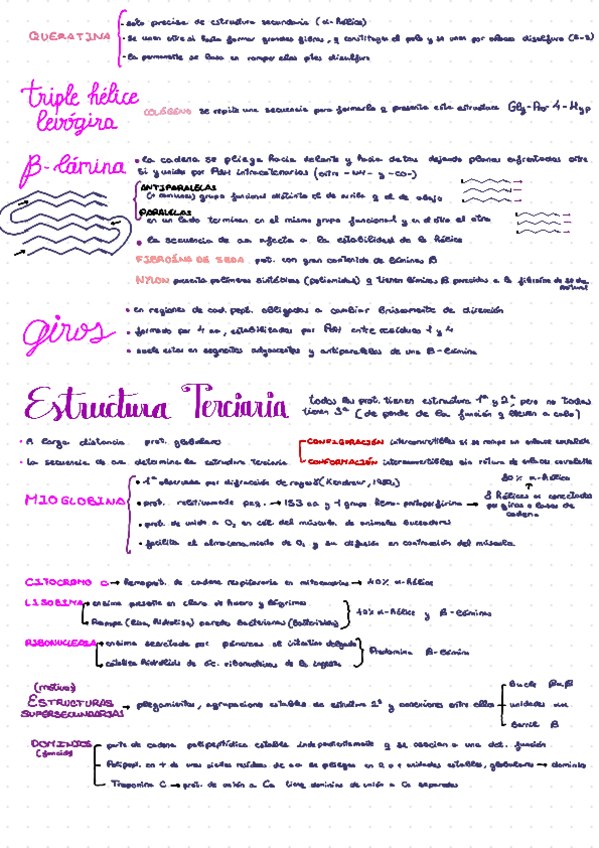 QUERATINA
- solo precisa de estructura secundaria (α-hélice)
- se unen entre si hasta formar grandes fibras, q constituyen el pelo y se unen por enlaces disulfuro (S-S)
- la permanente se basa en romper ellos ptes disulfuro
triple hélice levógira
COLÁGENO se repite una secuencia para formarla q presenta esta estructura Gly-Pro-4-Hyp
β-lámina
• la cadena se pliega hacia delante y hacia detras dejando planos enfrentados entre
si y unido por PdH intracatenarios (entre -NH- y -CO-)
ANTIPARALELAS
grupo funcional distinto el de arriba q el de abajo
PARALELAS
en un lado terminan en el mismo grupo funcional y en el otro el otro
• la secuencia de aa afecta a la estabilidad de la hélice
FIBROÍNA DE SEDA prot. con gran contenido de láminas β
NYLON presenta polímeros sintéticos (poliamidas) q tienen láminas β parecidas a la fibroína de seda natural
giros
• en regiones de cad. pept. obligadas a cambiar bruscamente de dirección
• formado por 4 aa, estabilizadas por PdH entre residuos 1 y 4
• suele estar en segmentos adyacentes y antiparalelas de una β-lámina
Estructura Terciaria
todas las prot. tienen estructura 1ª y 2ª, pero no todas
tienen 3ª (depende de la función q lleven a cabo)
• A larga distancia prot. globulares
• la secuencia de aa determina la estructura terciaria
CONFIGURACIÓN interconvertibles si se rompe un enlace covalente
CONFORMACIÓN interconvertibles sin rotura de enlaces covalentes
MIOGLOBINA
• 1ª observada por difracción de rayos X (Kendrew, 1950)
• prot. relativamente peq. → 153 aa y 1 grupo hemo-protoporfirina →
80% α-hélice
8 hélices α conectadas
por giros o lazos de
cadena
• prot. de unión a O₂ en cél. del músculo de animales buceadores
• facilita el almacenamiento de O₂ y su difusión en contracción del músculo
CITOCROMO c → hemoprot. de cadena respiratoria en mitocondrias → 40% α-hélice
LISOZIMA
enzima presente en clara de huevo y lágrimas
Rompe (lisa, hidroliza) paredes bacterianas (bactericida)
40% α-hélice y β-láminas
RIBONUCLEASA
enzima secretada por páncreas al intestino delgado
cataliza hidrólisis de ác. ribonucleicos de la ingesta
Predomina β-lámina
(motivos)
ESTRUCTURAS SUPERSECUNDARIAS → plegamientos, agrupaciones estables de estructura 2ª y conexiones entre ellas
Bucle β-α-β
unidades αα
Barril β
DOMINIOS
(función)
parte de cadena polipeptídica estable independientemente q se asocian a una det. función
Polipept. en + de unos cientos residuos de aa se pliegan en 2 o + unidades estables, globulares → dominio
Troponina C → prot. de unión a Ca tiene dominios de unión a Ca separados